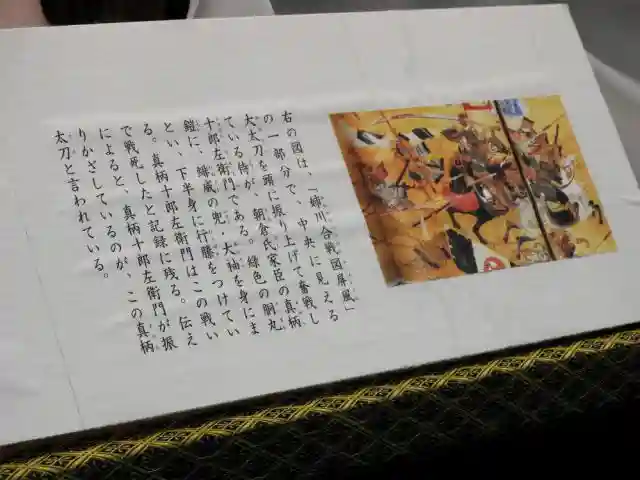 右の図は、「姉川合戦図屏風」
の一部分で、中央に見える
大太刀を頭に振り上げて奮戦し
ている侍が、朝倉氏家臣の真柄
十郎左衛門である。緑色の胴丸
鎧に、緋威の兜・大袖を身にま
とい、下半身に行縢をつけてい
る。真柄十郎左衛門はこの戦い
で戦死したと記録に残る。伝え
によると、真柄十郎左衛門が振
りかざしているのが、この真柄
太刀と言われている。